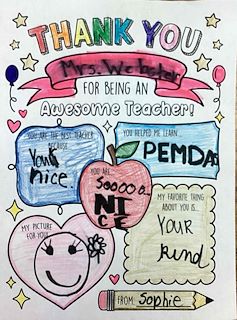 THANK YOU
Mrs. Webster
FOR BEING AN
Awesome Teacher!
YOU ARE THE BEST TEACHER
BECAUSE
Your
nice.
YOU HELPED ME LEARN...
PEMDAS
YOU ARE
Sooooo
NI
CE
MY FAVORITE THING
ABOUT YOU IS...
YOUR
kind
MY PICTURE
FOR YOU!
FROM: Sophie